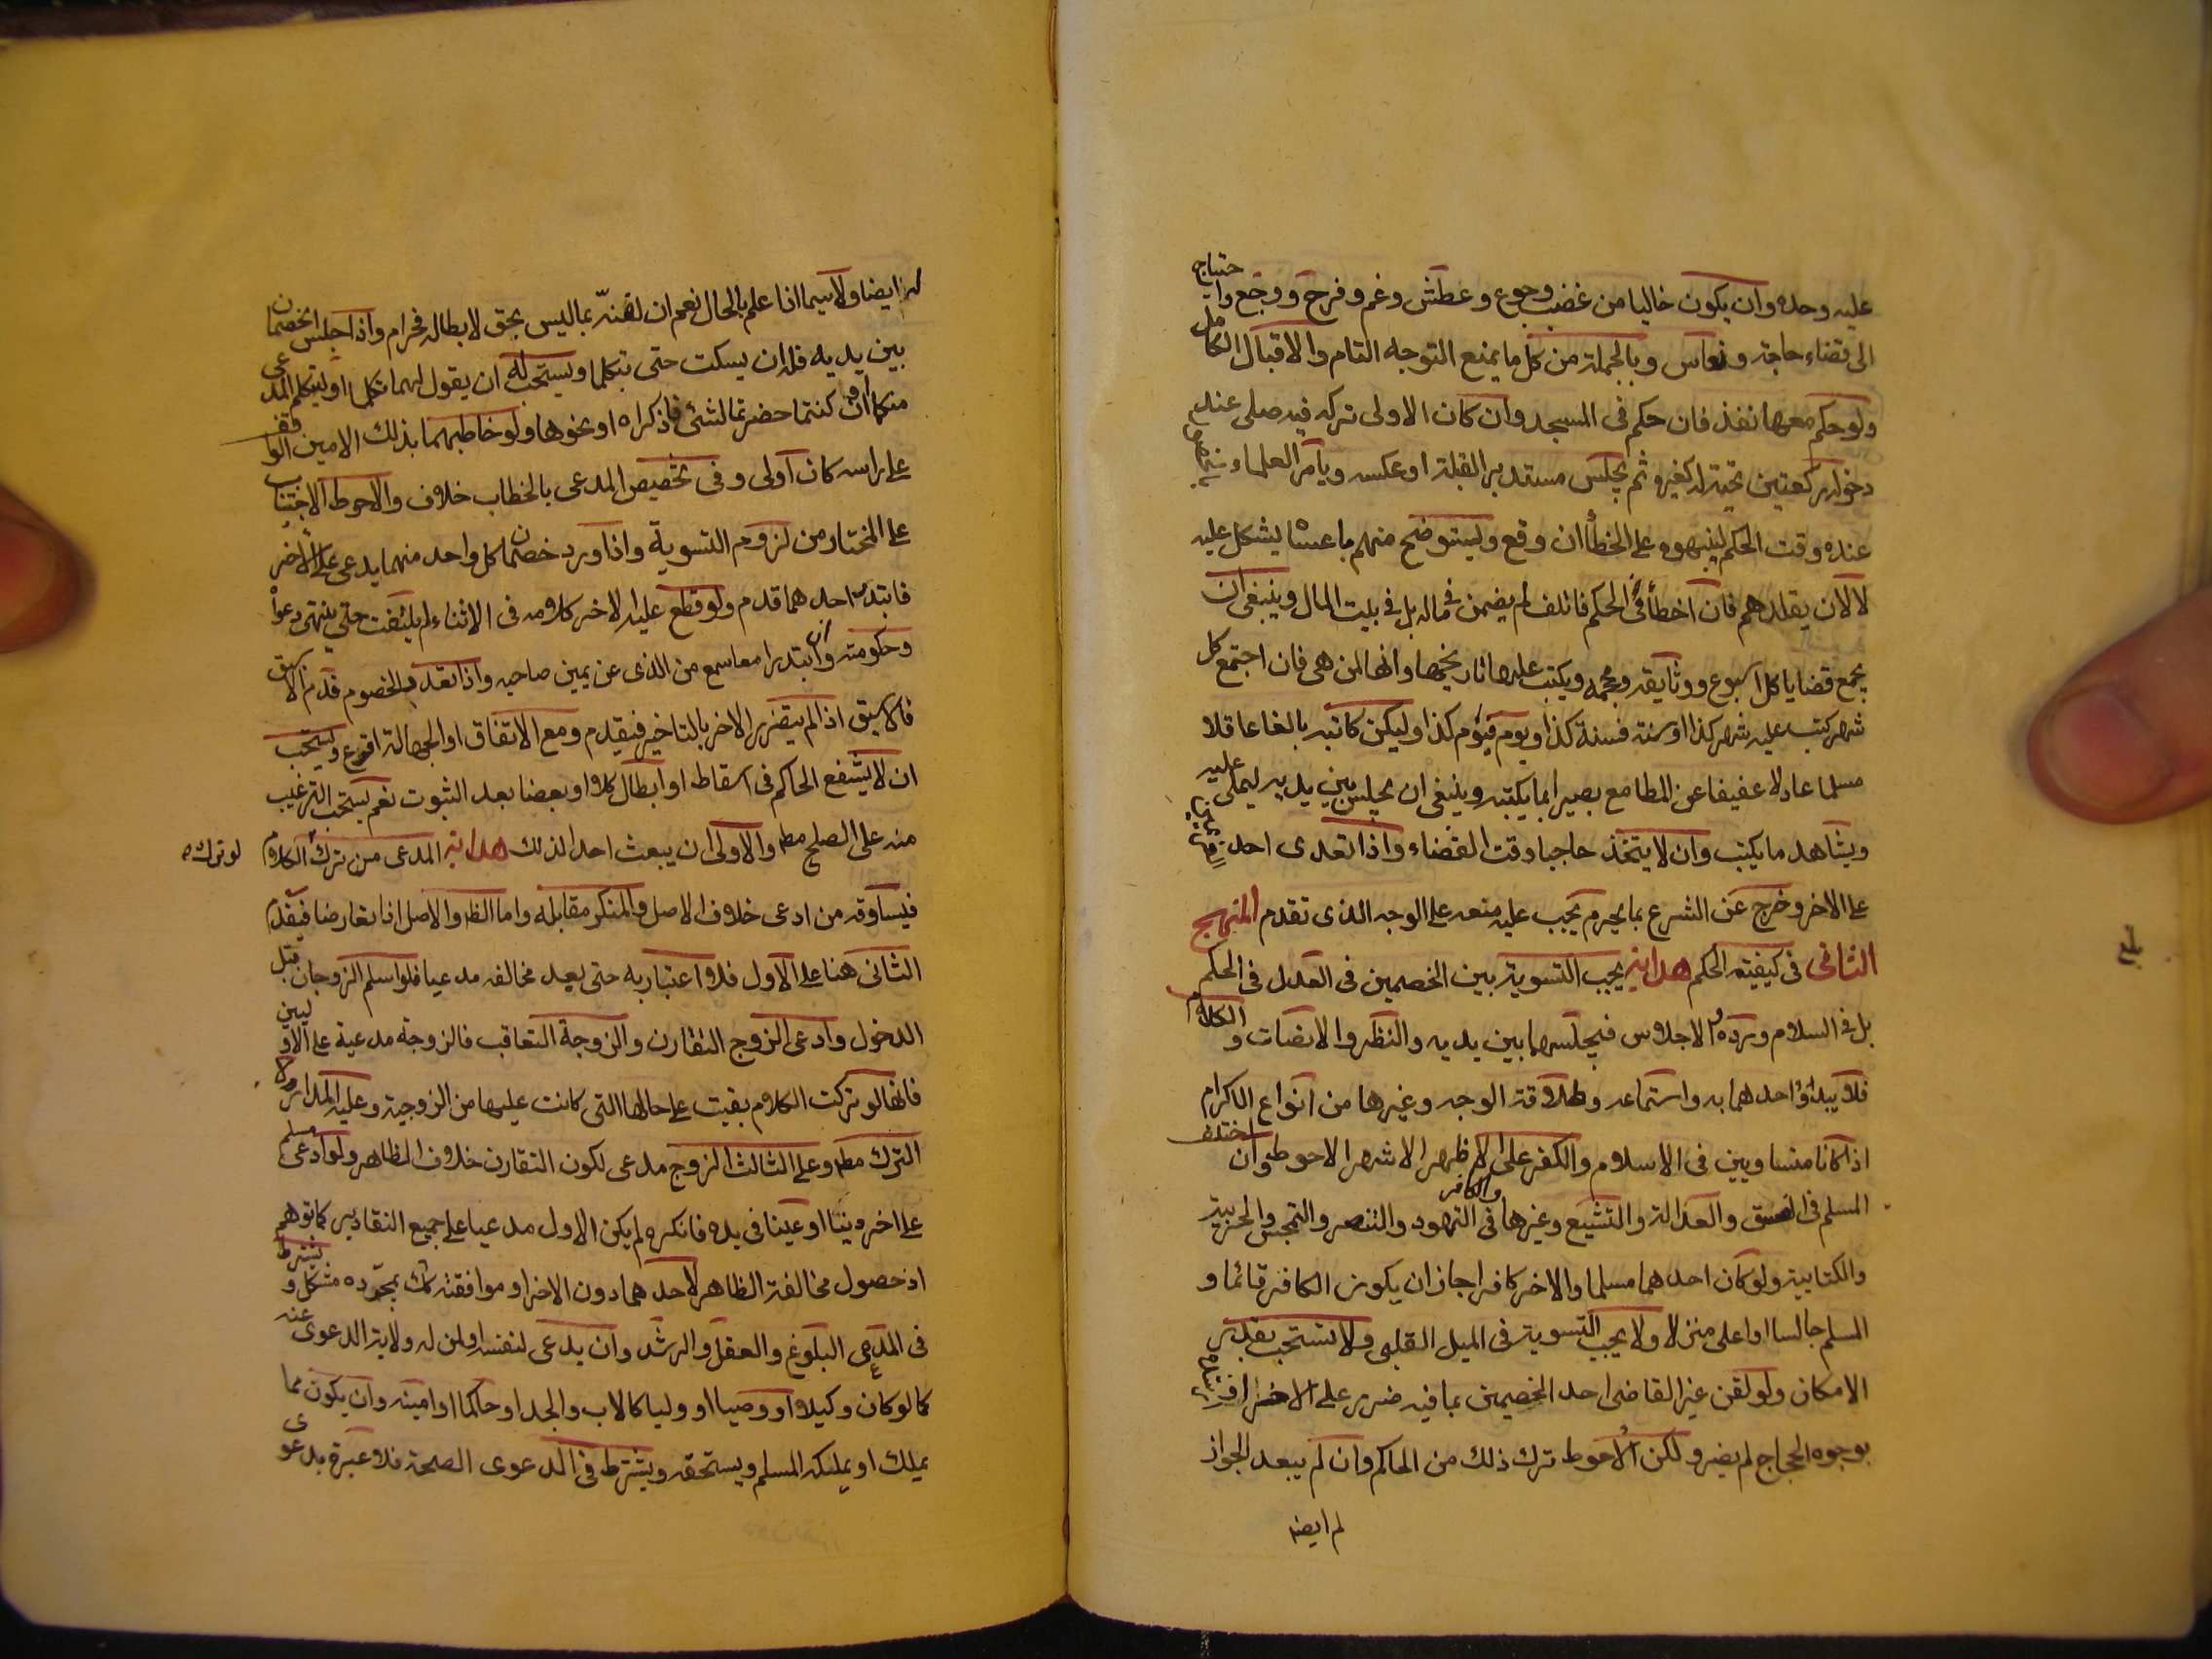 عليه وحده وان يكون خاليا من غضب وجوع وعطش وغم وفرح ووجع واحتياج
الى قضاء حاجة ونعاس وبالجملة من كل ما يمنع التوجه التام والاقبال الكامل
ولو حكم معها نفذ فان حكم فى المسجد وان كان الاولى تركه فيه صلى عند
دخوله ركعتين تحية له كغيره ثم يجلس مستدبر القبلة او عكسه ويامر العلماء
عنده وقت الحكم لينبهوه على الخطأ ان وقع وليستوضح منهم ما عساه يشكل عليه
لا لان يقلدهم فان اخطأ فى الحكم فاتلف لم يضمن فى ماله بل فى بيت المال وينبغى ان
يجمع قضايا كل اسبوع ووثايقه وحججه ويكتب عليها تاريخها وانها لمن هى فان اجتمع كل
شهر كتب عليه شهر كذا او سنة فسنة كذا او يوم فيوم كذا وليكن كاتبه بالغا عاقلا
مسلما عادلا عفيفا عن المطامع بصيرا بما يكتبه وينبغى ان يجلس بين يديه ليملى عليه
ويشاهد ما يكتب وان لا يتخذ حاجبا وقت القضاء واذا تعدى احد
على الاخر وخرج عن الشرع بما يحرم يجب عليه منعه على الوجه الذى تقدم المنهج
الثانى فى كيفية الحكم هداية يجب التسوية بين الخصمين فى العدل فى الحكم
بل فى السلام ورده والاجلاس فيجلسهما بين يديه والنظر والانصات والكلام
فلا يبدأ احدهما به واستماعه وطلاقة الوجه وغيرها من انواع الاكرام
اذا كانا متساويين فى الاسلام والكفر على الاظهر الاشهر الاحوط وان اختلف
المسلم فى الفسق والعدالة والتشيع وغيرها والكافر فى التهود والتنصر والتمجس والحربية
والكتابية ولو كان احدهما مسلما والاخر كافرا جاز ان يكون الكافر قائما و
المسلم جالسا او اعلى منزلا ولا يجب التسوية فى الميل القلبى ولا تستحب بقدر
الامكان ولو لقن غير القاضى احد الخصمين بما فيه ضرر على الاخر
بوجوه الحجاج لم يضر ولكن الاحوط ترك ذلك من الحاكم وان لم يبعد الجواز
لم ايضا
له ايضا ولا سيما اذا علم بالحال نعم ان لقنه بما ليس بحق لابطاله فحرام واذا جلس الخصمان
بين يديه فله ان يسكت حتى يتكلما ويستحب له ان يقول لهما تكلما او ليتكلم المدعى
منكما او ان كنتما حضرتما لشئ فاذكراه او نحوها ولو خاطبهما بذلك الامين الواقف
على راسه كان اولى وفى تخصيص المدعى بالخطاب خلاف والاحوط الاجتناب
على المختار من لزوم التسوية واذا ورد خصمان كل واحد منهما يدعى على الاخر
فابتدء احدهما قدم ولو قطع عليه الاخر كلامه فى الاثناء لم يلتفت حتى ينتهى دعواه
وحكومته وان ابتدرا معا سمع من الذى عن يمين صاحبه واذا تعدد الخصوم قدم الاسبق
فالاسبق اذا لم يتضرر الاخر بالتاخير فيقدم ومع الاتفاق او الجهالة اقرع ويستحب
ان لا يشفع الحاكم فى اسقاط او ابطال كلا او بعضا بعد الثبوت نعم يستحب الترغيب
منه على الصلح مطه والاولى ان يبعث احدا لذلك هداية المدعى من ترك الكلام
لو ترك ه
فيساوقه من ادعى خلاف الاصل والمنكر مقابله واما الظ والاصل اذا تعارضا فيقدم
الثانى هنا على الاول فلا اعتبار به حتى يعد مخالفه مدعيا فلو اسلم الزوجان قبل
الدخول وادعى الزوج التقارن والزوجة التعاقب فالزوجة مدعية على الاولين
فانها لو تركت الكلام بقيت على حالها التى كانت عليها من الزوجية وعليه المدار
الترك مطه وعلى الثالث الزوج مدعى لكون التقارن خلاف الظاهر ولو ادعى مسلم
على اخر دينا او عينا فى يده فانكره لم يكن الاول مدعيا على جميع التقادير كما توهم
اذ حصول مخالفة الظاهر لاحدهما دون الاخر او موافقته لك بمجرده مشكل ويشترط
فى المدعى البلوغ والعقل والرشد وان يدعى لنفسه او لمن له ولاية الدعوى عنه
كما لو كان وكيلا او وصيا او وليا كالاب والجد او حاكما او امينه وان يكون مما
يملك او يملكه المسلم ويستحقه ويشترط فى الدعوى الصحة فلا عبرة بدعوى